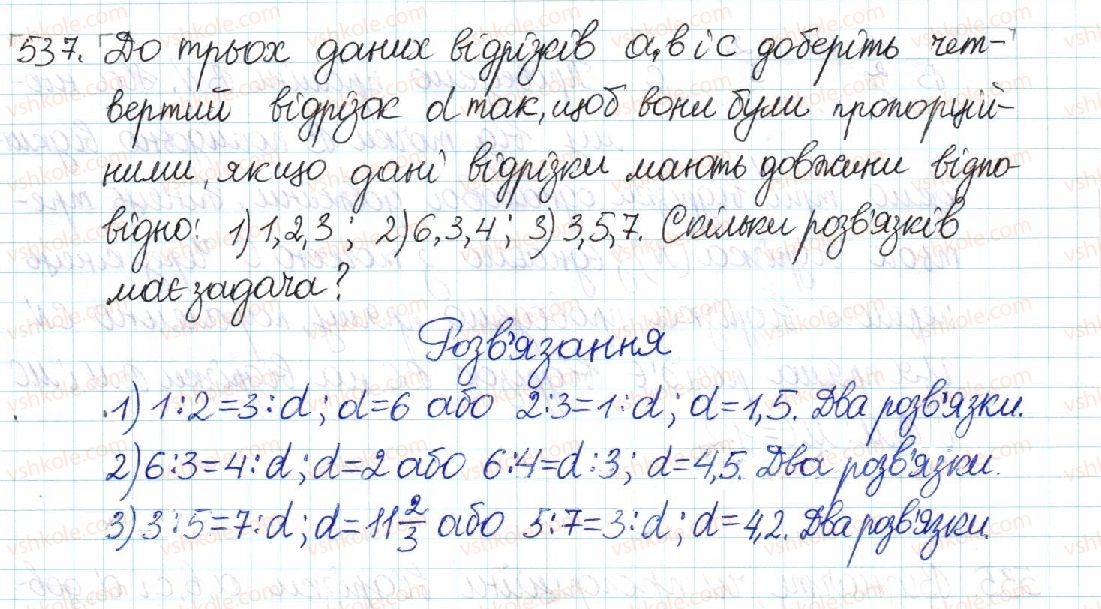 537. До трьох даних відрізків a, b і c доберіть чет-
вертий відрізок d так, щоб вони були пропорцій-
ними, якщо дані відрізки мають довжини відпо-
відно: 1) 1, 2, 3; 2) 6, 3, 4; 3) 3, 5, 7. Скільки розв'язків
має задача?
Розв'язання
1) 1:2=3:d; d=6 або 2:3=1:d; d=1,5. Два розв'язки.
2) 6:3=4:d; d=2 або 6:4=d:3; d=4,5. Два розв'язки.
3) 3:5=7:d; d=11 2/3 або 5:7=3:d; d=4,2. Два розв'язки.